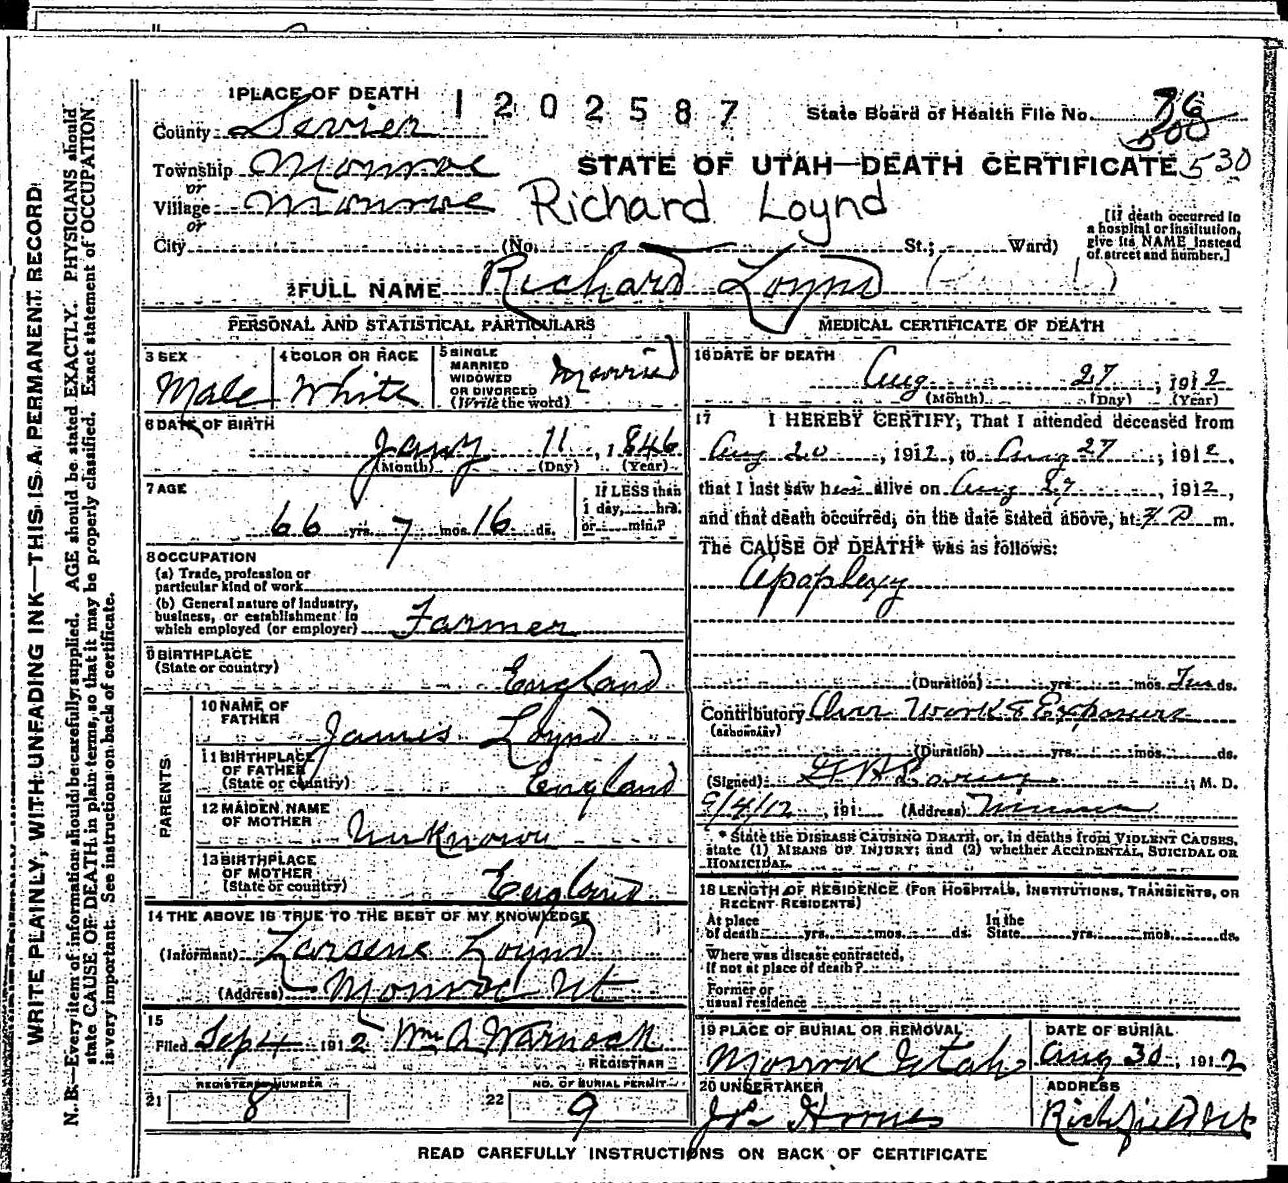 1 PLACE OF DEATH
1202587
State Board of Health File No. 76
500
County Sevier
STATE OF UTAH—DEATH CERTIFICATE 530
Township Monroe
or
Village Monroe
Richard Loynd
or
City (No. St.; Ward)
[If death occurred in
a hospital or institution,
give its NAME instead
of street and number.]
2 FULL NAME Richard Loynd
PERSONAL AND STATISTICAL PARTICULARS
3 SEX
Male
4 COLOR OR RACE
White
5 SINGLE
MARRIED
WIDOWED
OR DIVORCED
(Write the word)
Married
6 DATE OF BIRTH
Jany 11, 1846
(Month) (Day) (Year)
7 AGE
66 yrs. 7 mos. 16 ds.
If LESS than
1 day, hrs.
or min.?
8 OCCUPATION
(a) Trade, profession or
particular kind of work
(b) General nature of industry,
business, or establishment in
which employed (or employer) Farmer
9 BIRTHPLACE
(State or country)
England
PARENTS
10 NAME OF
FATHER
James Loynd
11 BIRTHPLACE
OF FATHER
(State or country)
England
12 MAIDEN NAME
OF MOTHER
Unknown
13 BIRTHPLACE
OF MOTHER
(State or country)
England
14 THE ABOVE IS TRUE TO THE BEST OF MY KNOWLEDGE
(Informant) Larsene Loynd
(Address) Monroe Ut
15
Filed Sep 4 1912 Wm A Warnock
REGISTRAR
21 REGISTERED NUMBER
8
22 NO. OF BURIAL PERMIT
9
MEDICAL CERTIFICATE OF DEATH
16 DATE OF DEATH
Aug 27, 1912
(Month) (Day) (Year)
17 I HEREBY CERTIFY, That I attended deceased from
Aug 20, 1912, to Aug 27, 1912,
that I last saw him alive on Aug 27, 1912,
and that death occurred, on the date stated above, at m.
The CAUSE OF DEATH* was as follows:
Apoplexy
(Duration) yrs. mos. ds.
Contributory Over Work & Exposure
(SECONDARY)
(Duration) yrs. mos. ds.
(Signed) M. D.
9/4/12, 191 (Address)
* State the DISEASE CAUSING DEATH, or, in deaths from VIOLENT CAUSES,
state (1) MEANS OF INJURY; and (2) whether ACCIDENTAL, SUICIDAL OR
HOMICIDAL.
18 LENGTH OF RESIDENCE (FOR HOSPITALS, INSTITUTIONS, TRANSIENTS, OR
RECENT RESIDENTS)
At place
of death yrs. mos. ds.
In the
State yrs. mos. ds.
Where was disease contracted,
If not at place of death?
Former or
usual residence
19 PLACE OF BURIAL OR REMOVAL
Monroe Utah
DATE OF BURIAL
Aug 30, 1912
20 UNDERTAKER
ADDRESS
Richfield Ut
READ CAREFULLY INSTRUCTIONS ON BACK OF CERTIFICATE
WRITE PLAINLY, WITH UNFADING INK—THIS IS A PERMANENT RECORD
N. B.—Every item of information should be carefully supplied. AGE should be stated EXACTLY. PHYSICIANS should
state CAUSE OF DEATH in plain terms, so that it may be properly classified. Exact statement of OCCUPATION
is very important. See instructions on back of certificate.